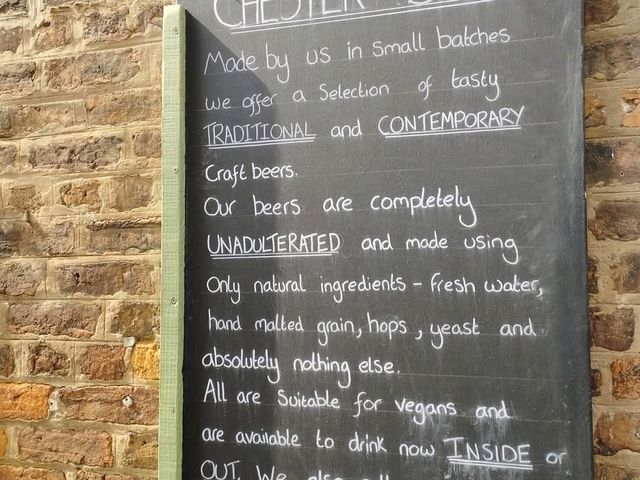 CHESTER
Made by us in small batches
we offer a selection of tasty
TRADITIONAL and CONTEMPORARY
Craft beers.
Our beers are completely
UNADULTERATED and made using
Only natural ingredients - fresh water,
hand malted grain, hops, yeast and
absolutely nothing else.
All are Suitable for vegans and
are available to drink now INSIDE or
OUT. We also